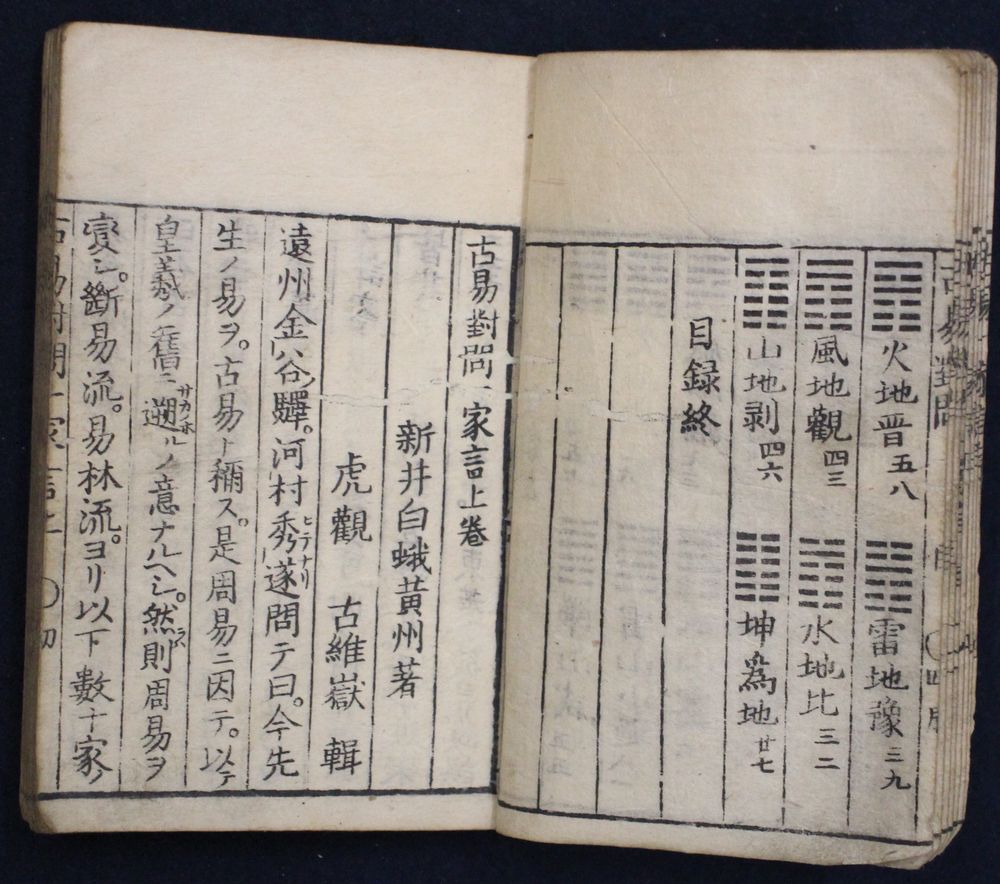 火地晋五八
雷地豫三九
風地觀四三
水地比三二
山地剥四六
坤爲地廿七
目録終
古易對問一家言上卷
新井白蛾黄州著
虎觀 古維嶽 輯
遠州金谷驛。河村秀遂ヒテナリ問テ曰。今先
生ノ易ヲ。古易ト稱ス。是周易ニ因テ。以テ
皇羲ノ舊ニ遡サカノホルノ意ナルヘシ。然則ラハ周易ヲ
変シ。斷易流。易林流。ヨリ以下數十家ノ
古易對問一家言上 初